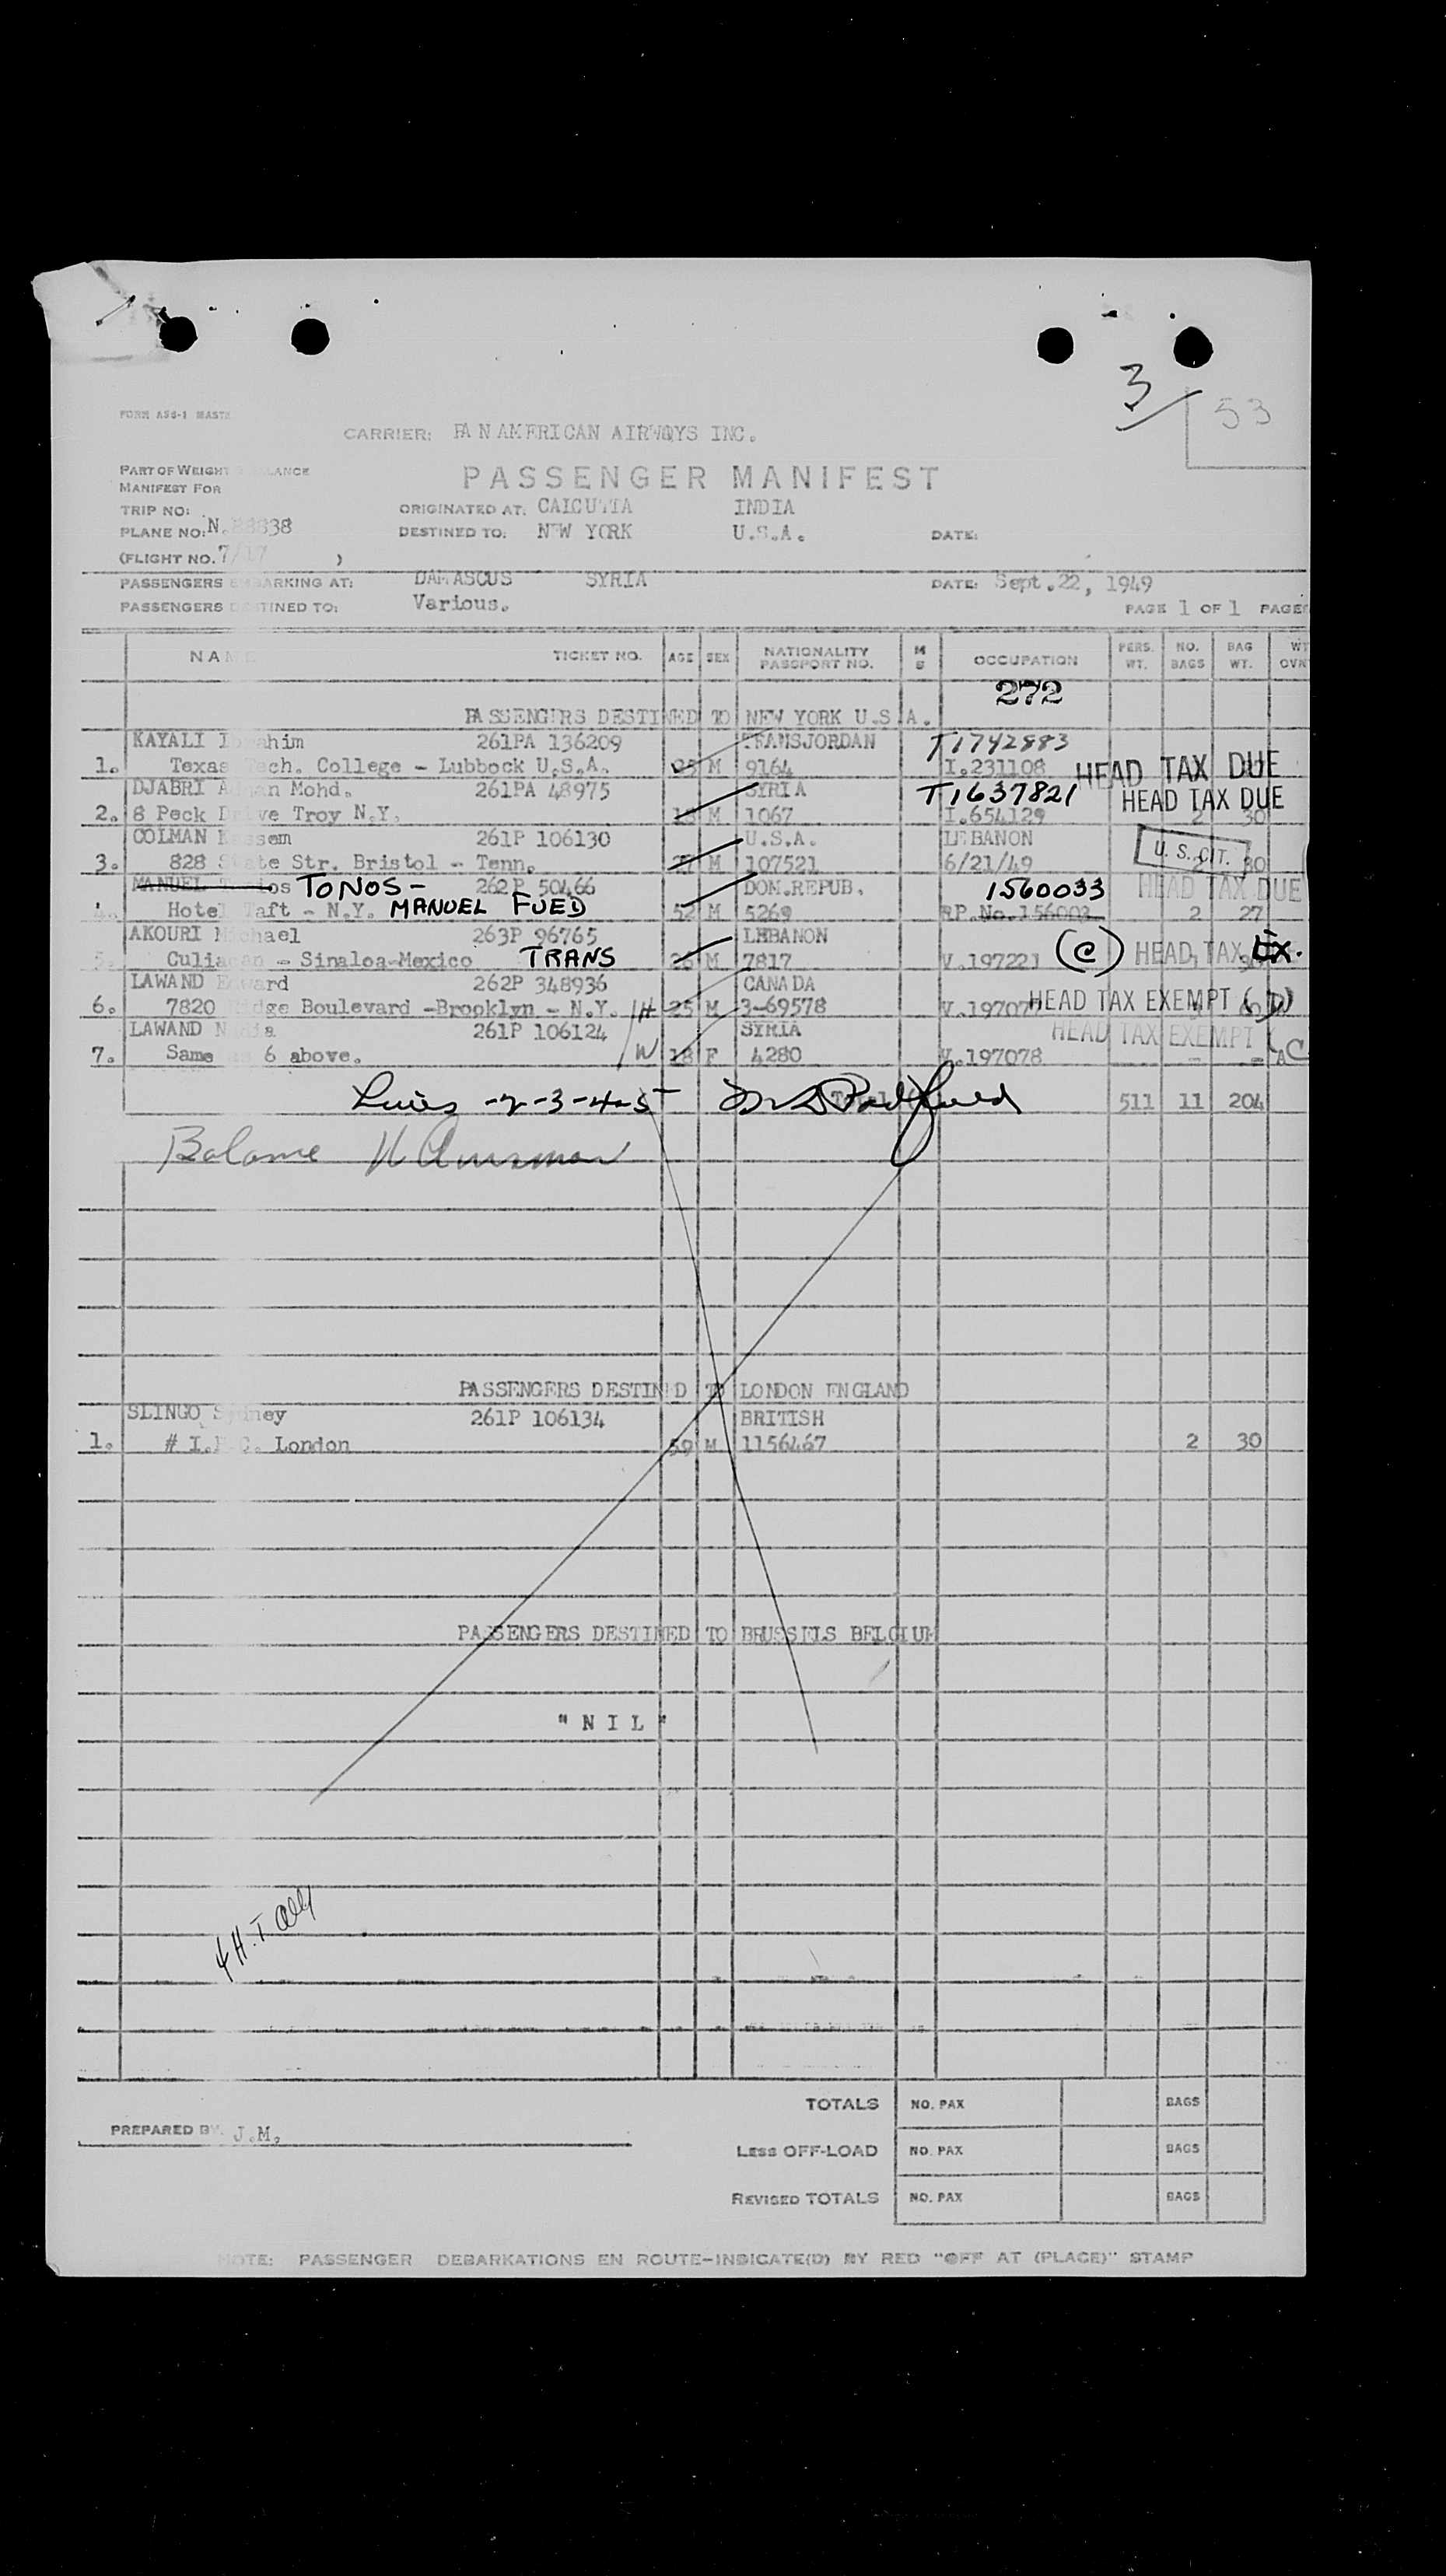 3/ 53
FORM AS6-1
CARRIER: PAN AMERICAN AIRWAYS INC.
PART OF WEIGHT
MANIFEST FOR
PASSENGER MANIFEST
TRIP NO: ORIGINATED AT: CALCUTTA INDIA
PLANE NO: DESTINED TO: NEW YORK U.S.A. DATE:
(FLIGHT NO. )
PASSENGERS EMBARKING AT: DAMASCUS SYRIA DATE: Sept.22, 1949
PASSENGERS DESTINED TO: Various. PAGE 1 OF 1 PAGE
NAME TICKET NO. AGE SEX NATIONALITY PASSPORT NO. M S OCCUPATION PERS. WT. NO. BAGS BAG WT.
272
PASSENGERS DESTINED TO NEW YORK U.S.A.
KAYALI Ibrahim 261PA 136209 TRANSJORDAN T1742883
1. Texas Tech. College - Lubbock U.S.A. M 9164 I.231108 HEAD TAX DUE
DJABRI Mohd. 261PA 48975 SYRIA T1637821 HEAD TAX DUE
2. 8 Peck Drive Troy N.Y. M 1067 I.654129 2 30
COLMAN 261P 106130 U.S.A. LEBANON U.S. CIT.
3. 828 State Str. Bristol - Tenn. M 107521 6/21/49
MANUEL TONOS- 262P 50466 DOM.REPUB. 1560033 HEAD TAX DUE
4. Hotel Taft - N.Y. MANUEL FUED 52 M 5269 RP.No.156003 2 27
AKOURI Michael 263P 96765 LEBANON
5. Culiacan - Sinaloa-Mexico TRANS 26 M 7817 V.197221 (C) HEAD TAX EX.
LAWAND Edward 262P 348936 CANADA HEAD TAX EXEMPT
6. 7820 Ridge Boulevard -Brooklyn - N.Y. H 25 M 3-69578 V.197077
LAWAND Nadia 261P 106124 SYRIA HEAD TAX EXEMPT
7. Same as 6 above. W 18 F 4280 V.197078 - -
-2-3-4-5- 511 11 204
PASSENGERS DESTINED TO LONDON ENGLAND
SLINGO Sydney 261P 106134 BRITISH
1. London 59 M 1156467 2 30
PASSENGERS DESTINED TO BRUSSELS BELGIUM
"NIL"
TOTALS NO. PAX BAGS
PREPARED BY J.M.
LESS OFF-LOAD NO. PAX BAGS
REVISED TOTALS NO. PAX BAGS
NOTE: PASSENGER DEBARKATIONS EN ROUTE-INDICATE(D) BY RED "OFF AT (PLACE)" STAMP